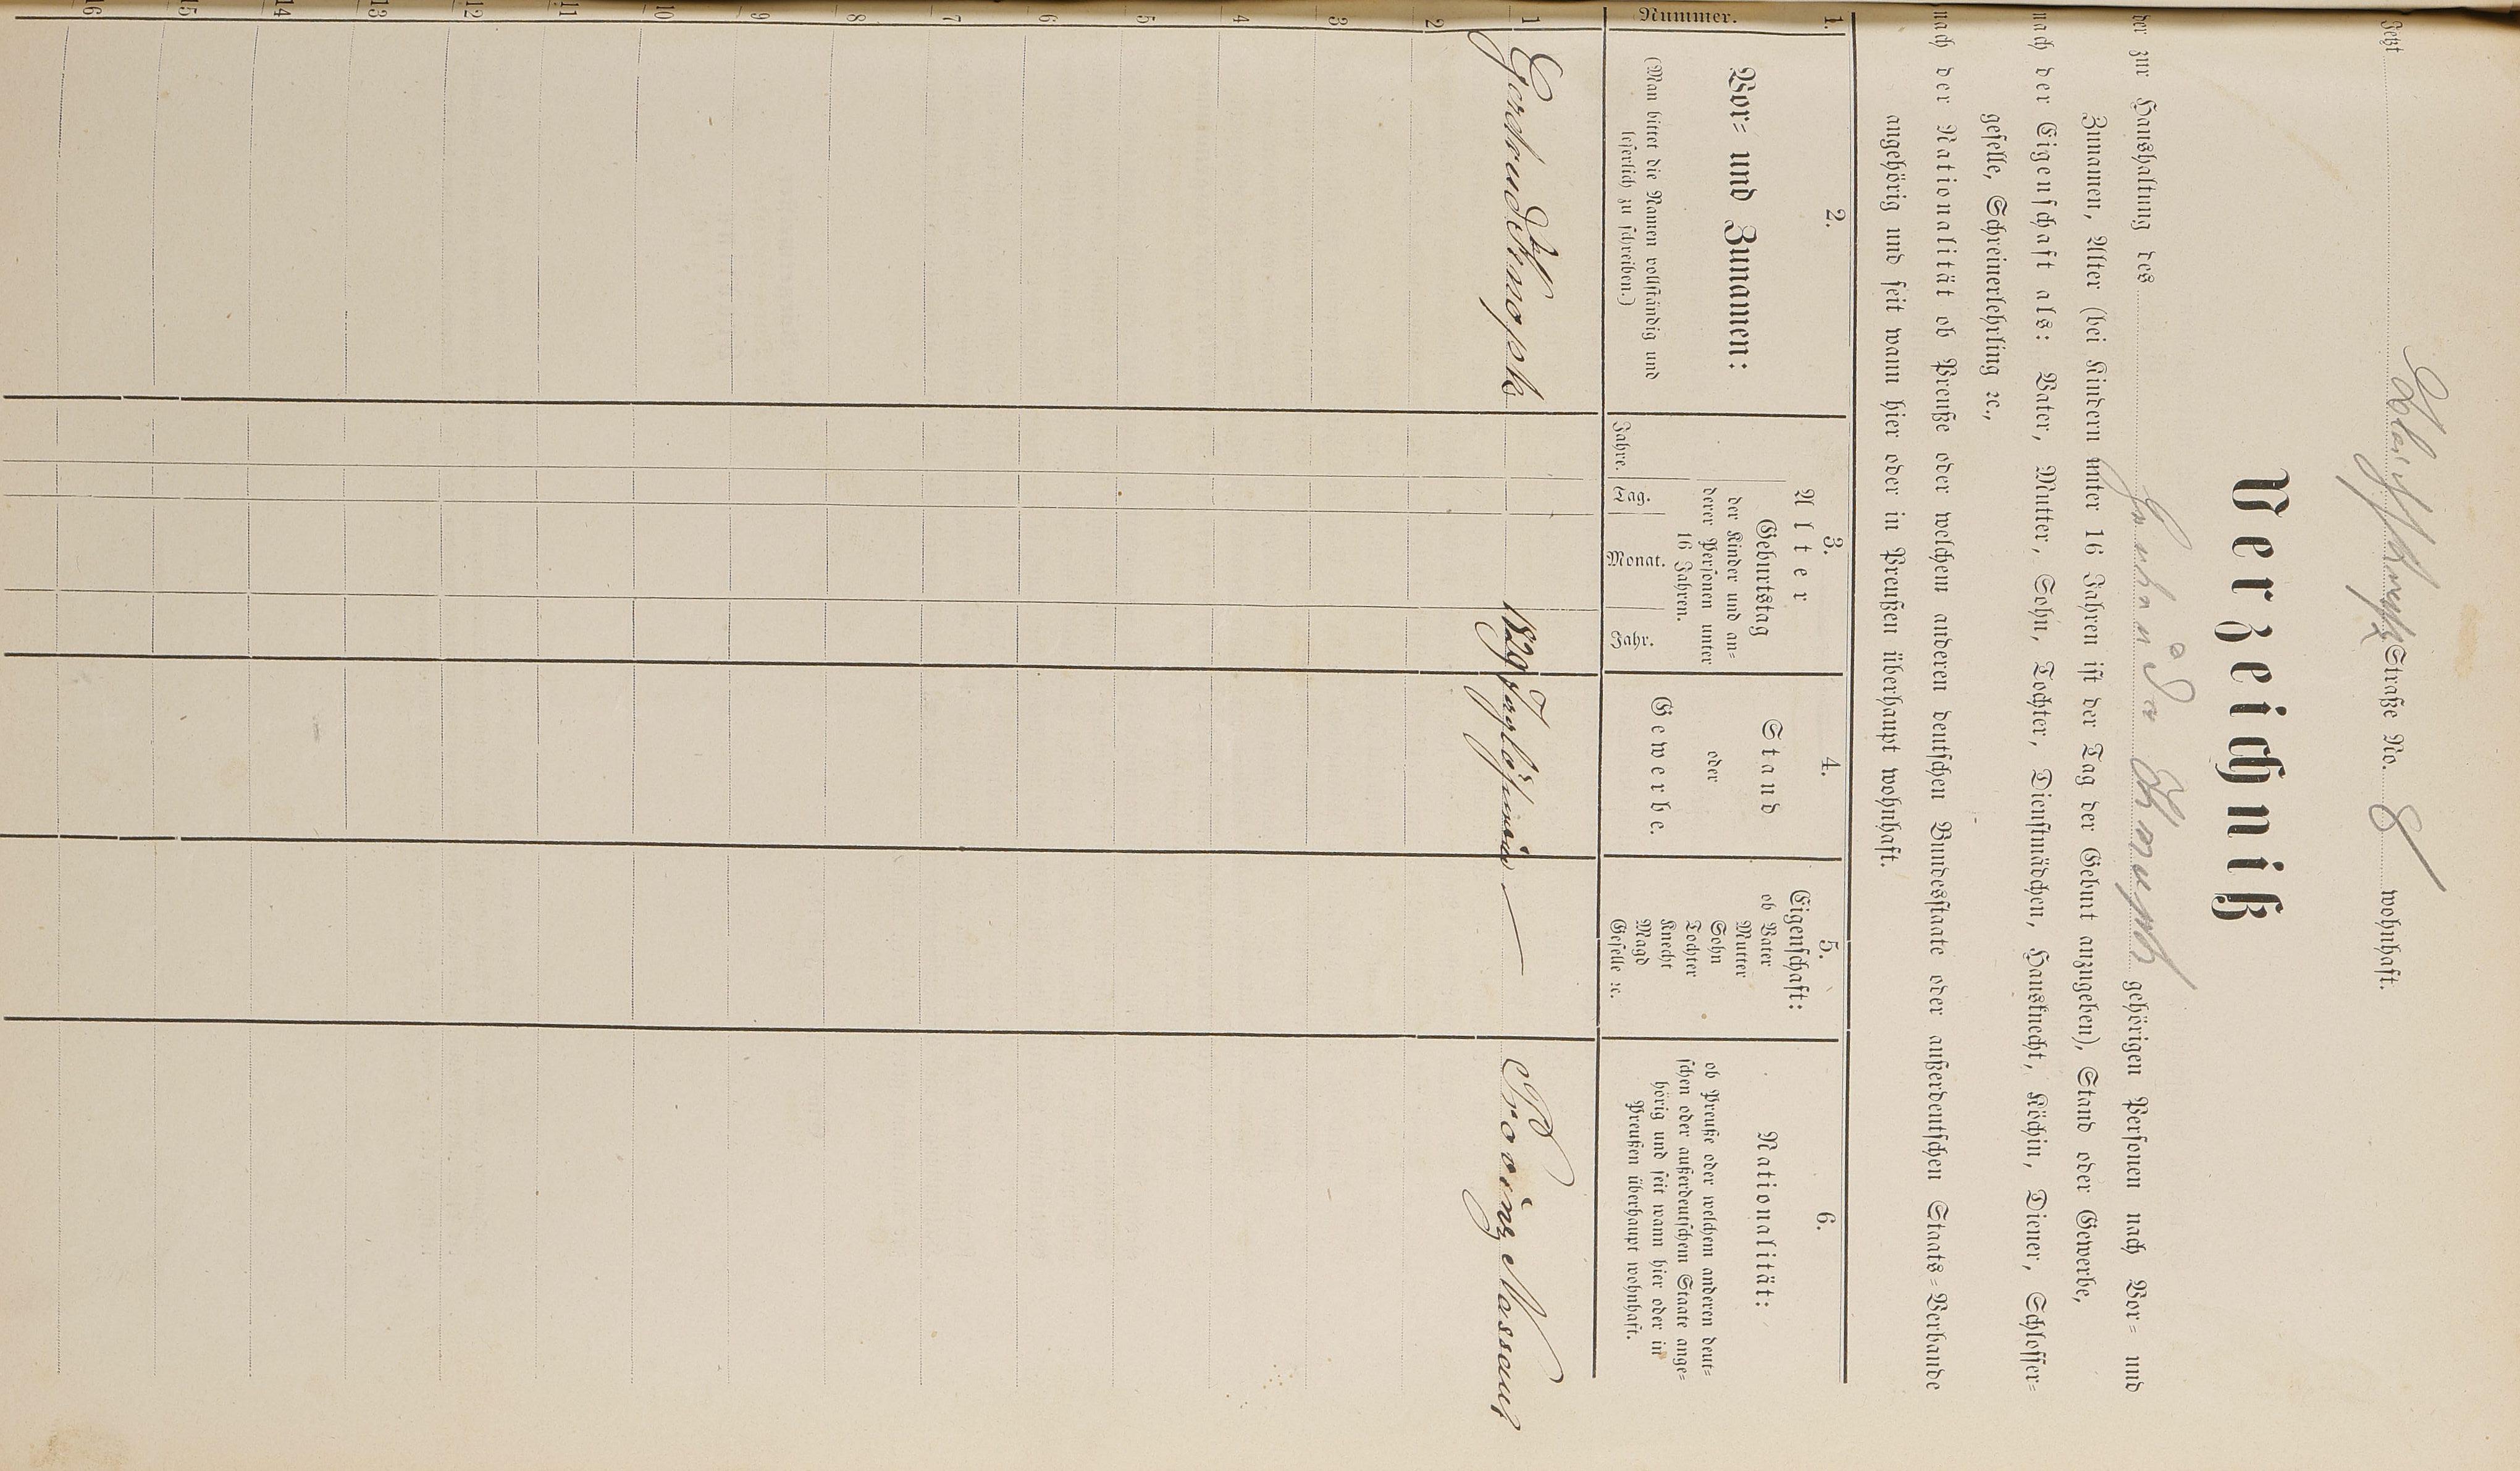 Jetzt Straße No. 8 wohnhaft.
Verzeichniß
der zur Haushaltung des gehörigen Personen nach Vor= und
Zunamen, Alter (bei Kindern unter 16 Jahren ist der Tag der Geburt anzugeben), Stand oder Gewerbe,
nach der Eigenschaft als: Vater, Mutter, Sohn, Tochter, Dienstmädchen, Hausknecht, Köchin, Diener, Schlosser=
geselle, Schreinerlehrling ꝛc.,
nach der Nationalität ob Preuße oder welchem anderen deutschen Bundesstaate oder außerdeutschen Staats=Verbande
angehörig und seit wann hier oder in Preußen überhaupt wohnhaft.
1.
Nummer.
2.
Vor= und Zunamen:
(Man bittet die Namen vollständig und
leserlich zu schreiben.)
3.
Alter
Geburtstag
der Kinder und an=
derer Personen unter
16 Jahren.
Jahre. Tag. Monat. Jahr.
4.
Stand
oder
Gewerbe.
5.
Eigenschaft:
ob Vater
Mutter
Sohn
Tochter
Knecht
Magd
Geselle ꝛc.
6.
Nationalität:
ob Preuße oder welchem anderen deut=
schen oder außerdeutschem Staate ange=
hörig und seit wann hier oder in
Preußen überhaupt wohnhaft.
1 Gertrud 1829 Taglöhnerin — Provinz Nassau
2
3
4
5
6
7
8
9
10
11
12
13
14
15
16